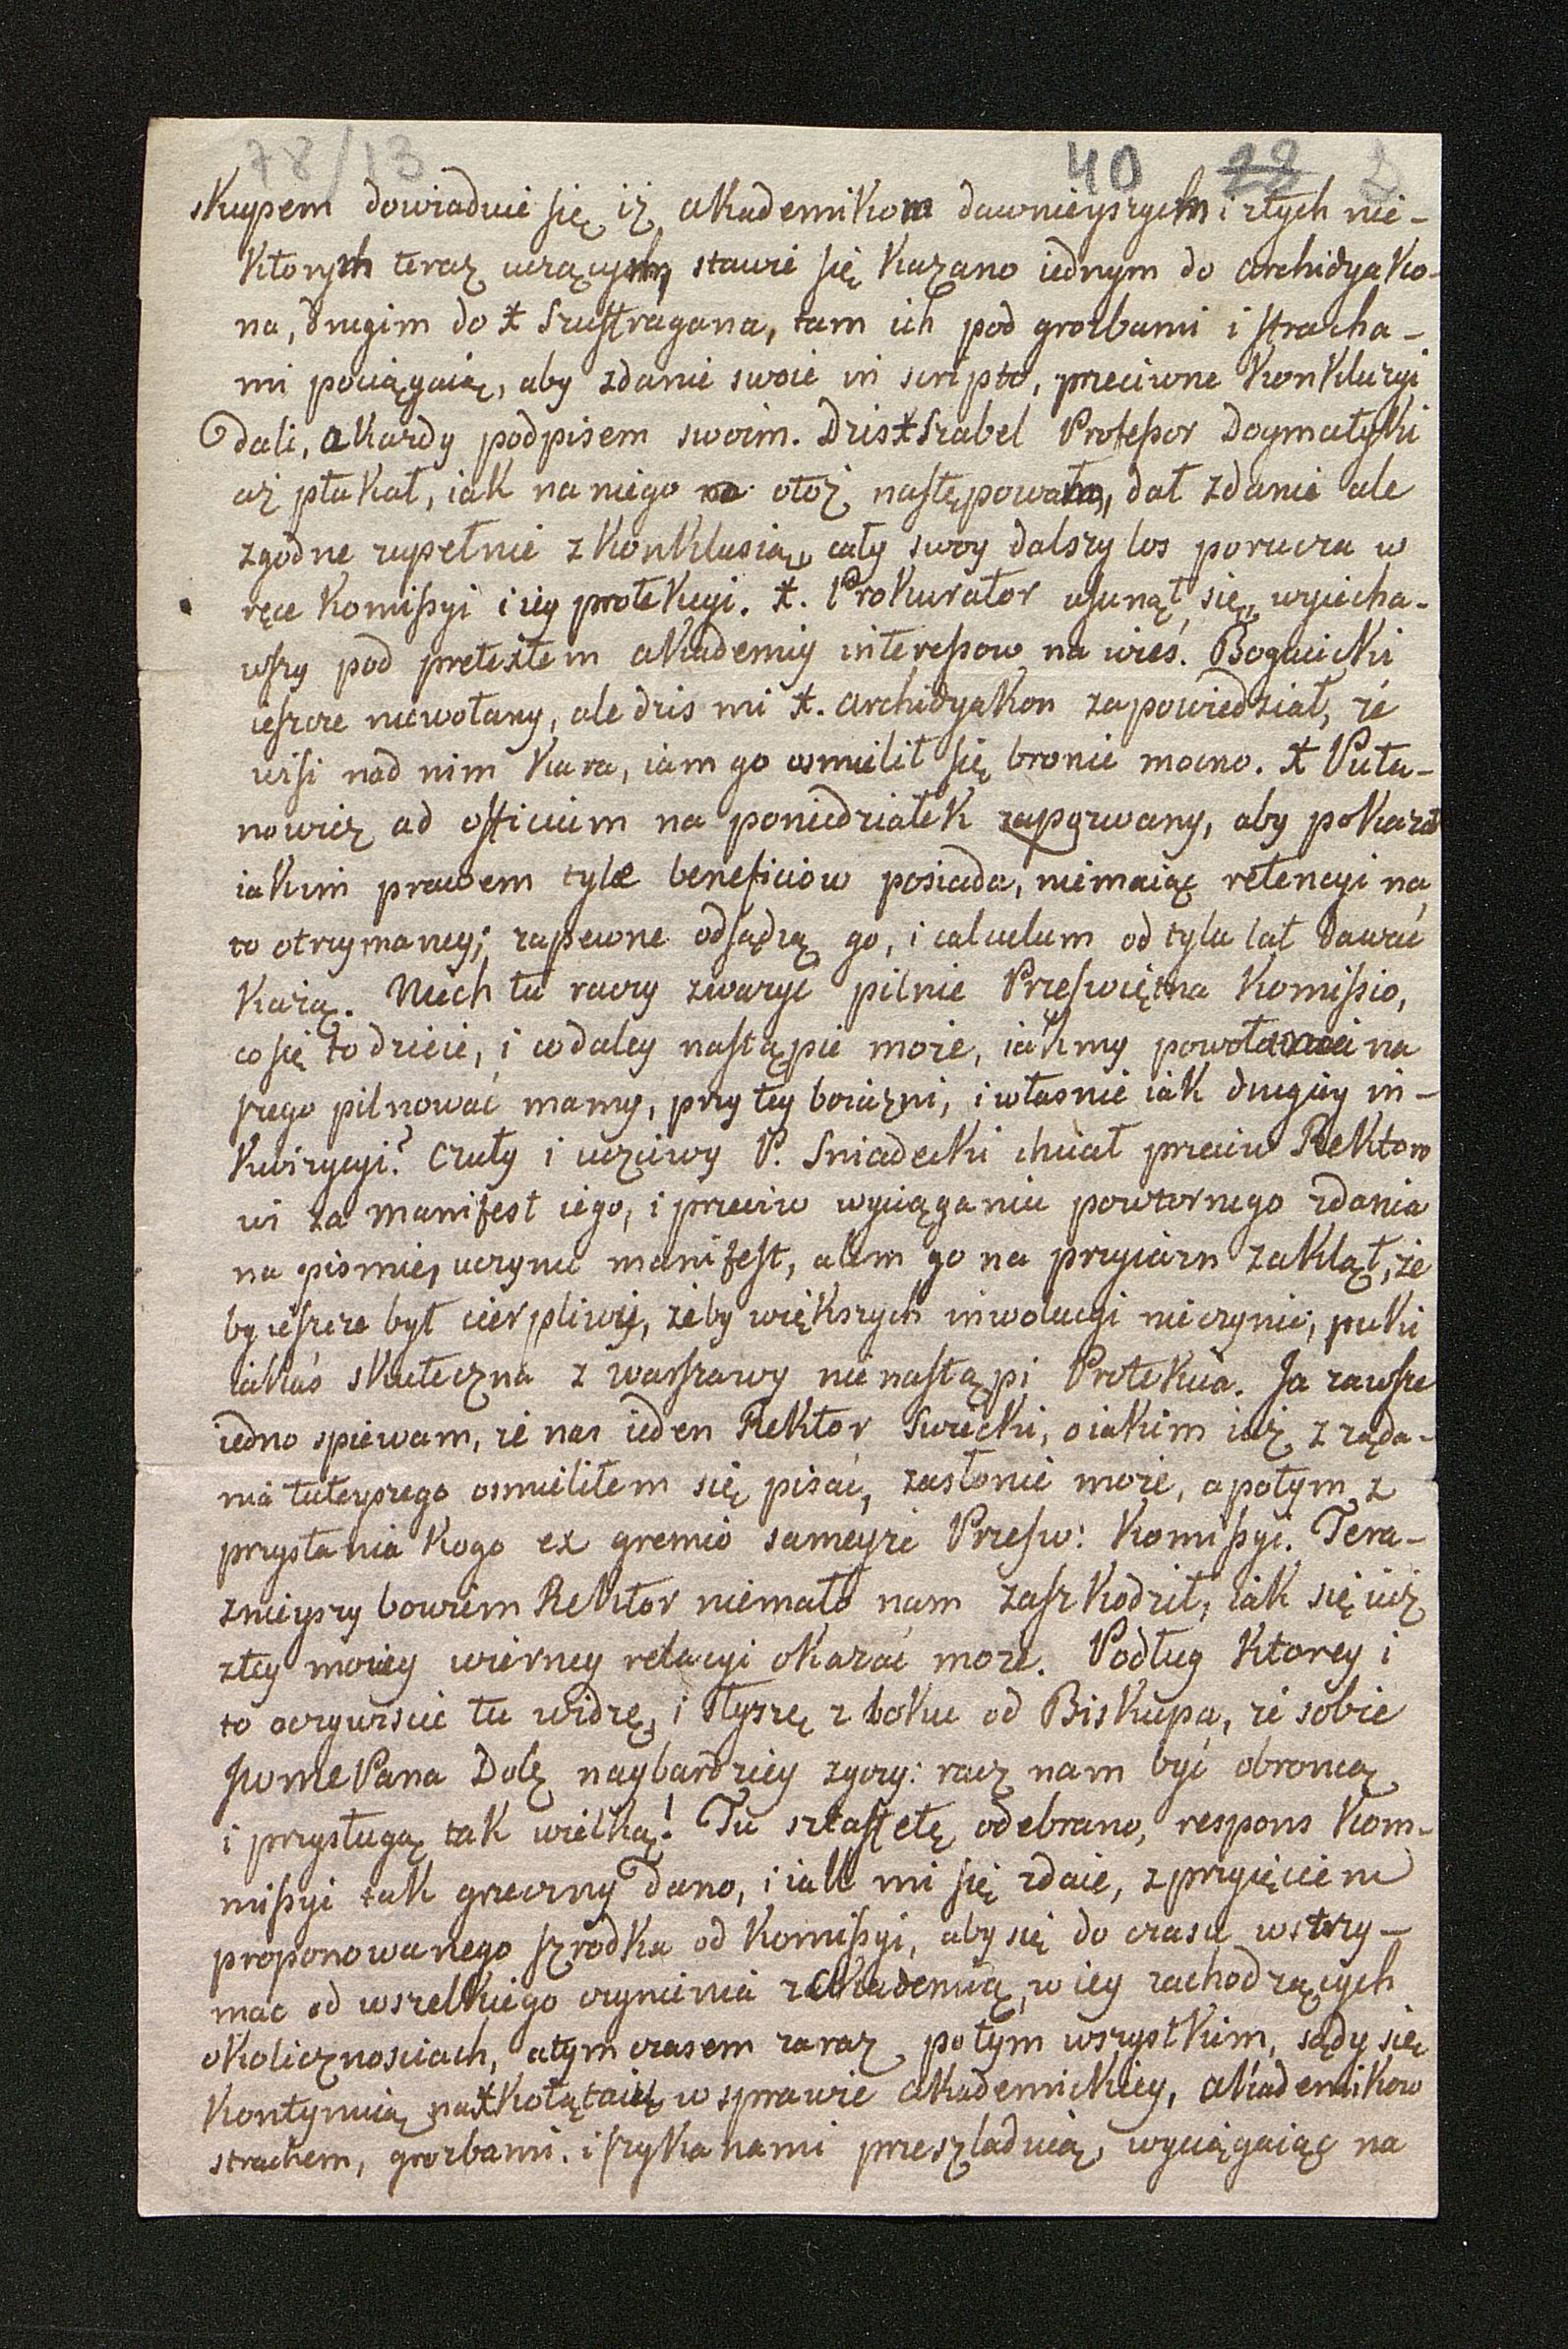 78/13 40 22
skupem dowiaduie się iż akademikom dawnieyszych i złych nie-
których teraz uczących, stawić się kazano iednym do archidyako-
na, drugim do X Szuffragana, tam ich pod grozbami i stracha-
mi pociągaią, aby zdanie swoie in scripto, przeciwne konkluzyi
dali, a kazdy podpisem swoim. Dzis X Szabel Professor Dogmatyki
aż płakał, iak na niego otoż następowano, dał zdanie ale
zgodne zupełnie z konklusią, cały swoy dalszy los porucza w
ręce Komissyi i iey protekcyi. X. Prokurator usunął się, wyiecha-
wszy pod pretextem akademiy interessow na wieś. Bogucicki
ieszcze niewołany, ale dzis mi X. archidyakon zapowiedział, że
wisi nad nim kara, iam go osmielił się bronić mocno. X Puta-
nowicz ad officium na poniedziałek zapozwany, aby pokazał
iakim prawem tyle beneficiow posiada, niemaiąc retencyi na
to otrzymaney; zapewne odsądzą go, i calculum od tylu lat dawać
każą. Niech tu raczy zwazyć pilnie Przeswiętna Komissio,
co się to dzieie, i co daley nastąpić może, iak my powołania na
szego pilnować mamy, przy tey boiazni, i własnie iak drugiey in-
kwizycyi? Czuły i uczciwy P. Sniadecki chciał przeciw Rektoro
wi za manifest iego, i przeciw wyciąganiu powtornego zdania
na pismie, uczynić manifest, alem go na przyiazn zaklął, że
by ieszcze był cierpliwy, żeby większych inwolucyi nieczynić, puki
iakaś skuteczna z Warszawy nie nastąpi Protekcia. Ja zawsze
iedno spiewam, że nas ieden Rektor swiecki, o iakim iuż z ząda-
nia tuteyszego osmieliłem się pisać, zasłonić może, a potym z
przysłania kogo ex gremio sameyże Przesw: Komissyi. Tera-
znieyszy bowiem Rektor niemało nam zaszkodził, iak się iuż
z tey moiey wierney relacyi okazać może. Podług ktorey i
to oczywiscie tu widzę, i słyszę z boku od Biskupa, że sobie
JWWMPana Dolę naybardziey zgory: racz nam być obroncą
i przysługą tak wielką! Tu sztaffetę odebrano, respons Kom-
missyi tak grzeczny dano, i iak mi się zdaie, z przyięciem
proponowanego szrodka od Komissyi, aby się do czasu wstrzy-
mać od wszelkiego czynienia z akademią, w iey zachodzących
okolicznosciach, a tym czasem zaraz po tym wszystkim, sądy się
kontynuią na X Kołłątaia w sprawie akademickiey, akademikow
strachem, grozbami i szykanami przesladuią, wyciągaiąc na